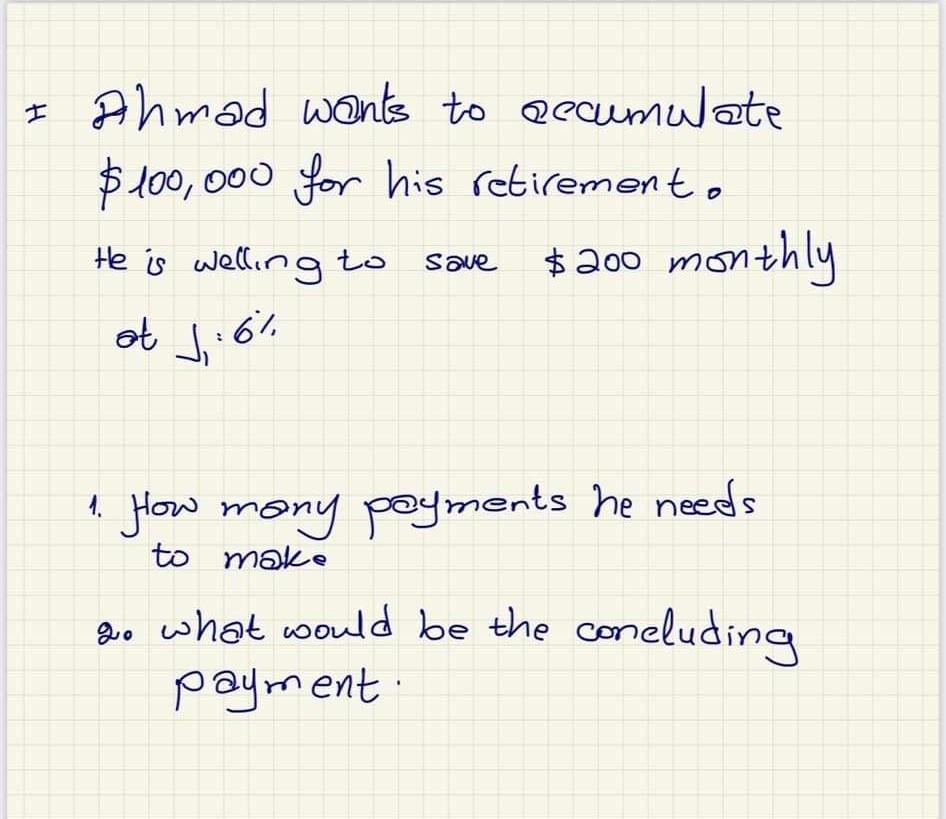 I Ahmad wants to accumulate
$100,000 for his retirement.
He is welling to save $200 monthly
at J₁ : 6%
1. How many payments he needs
to make
2. what would be the concluding
payment.